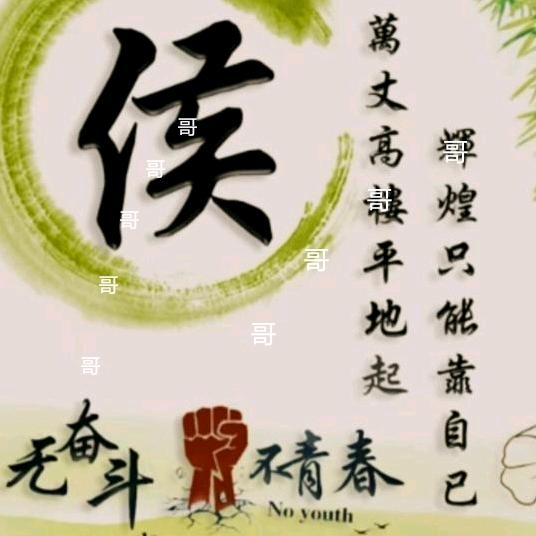 侯
萬丈高樓平地起
輝煌只能靠自己
哥
哥
哥
哥
哥
哥
哥
哥
无奋斗
不青春
No youth